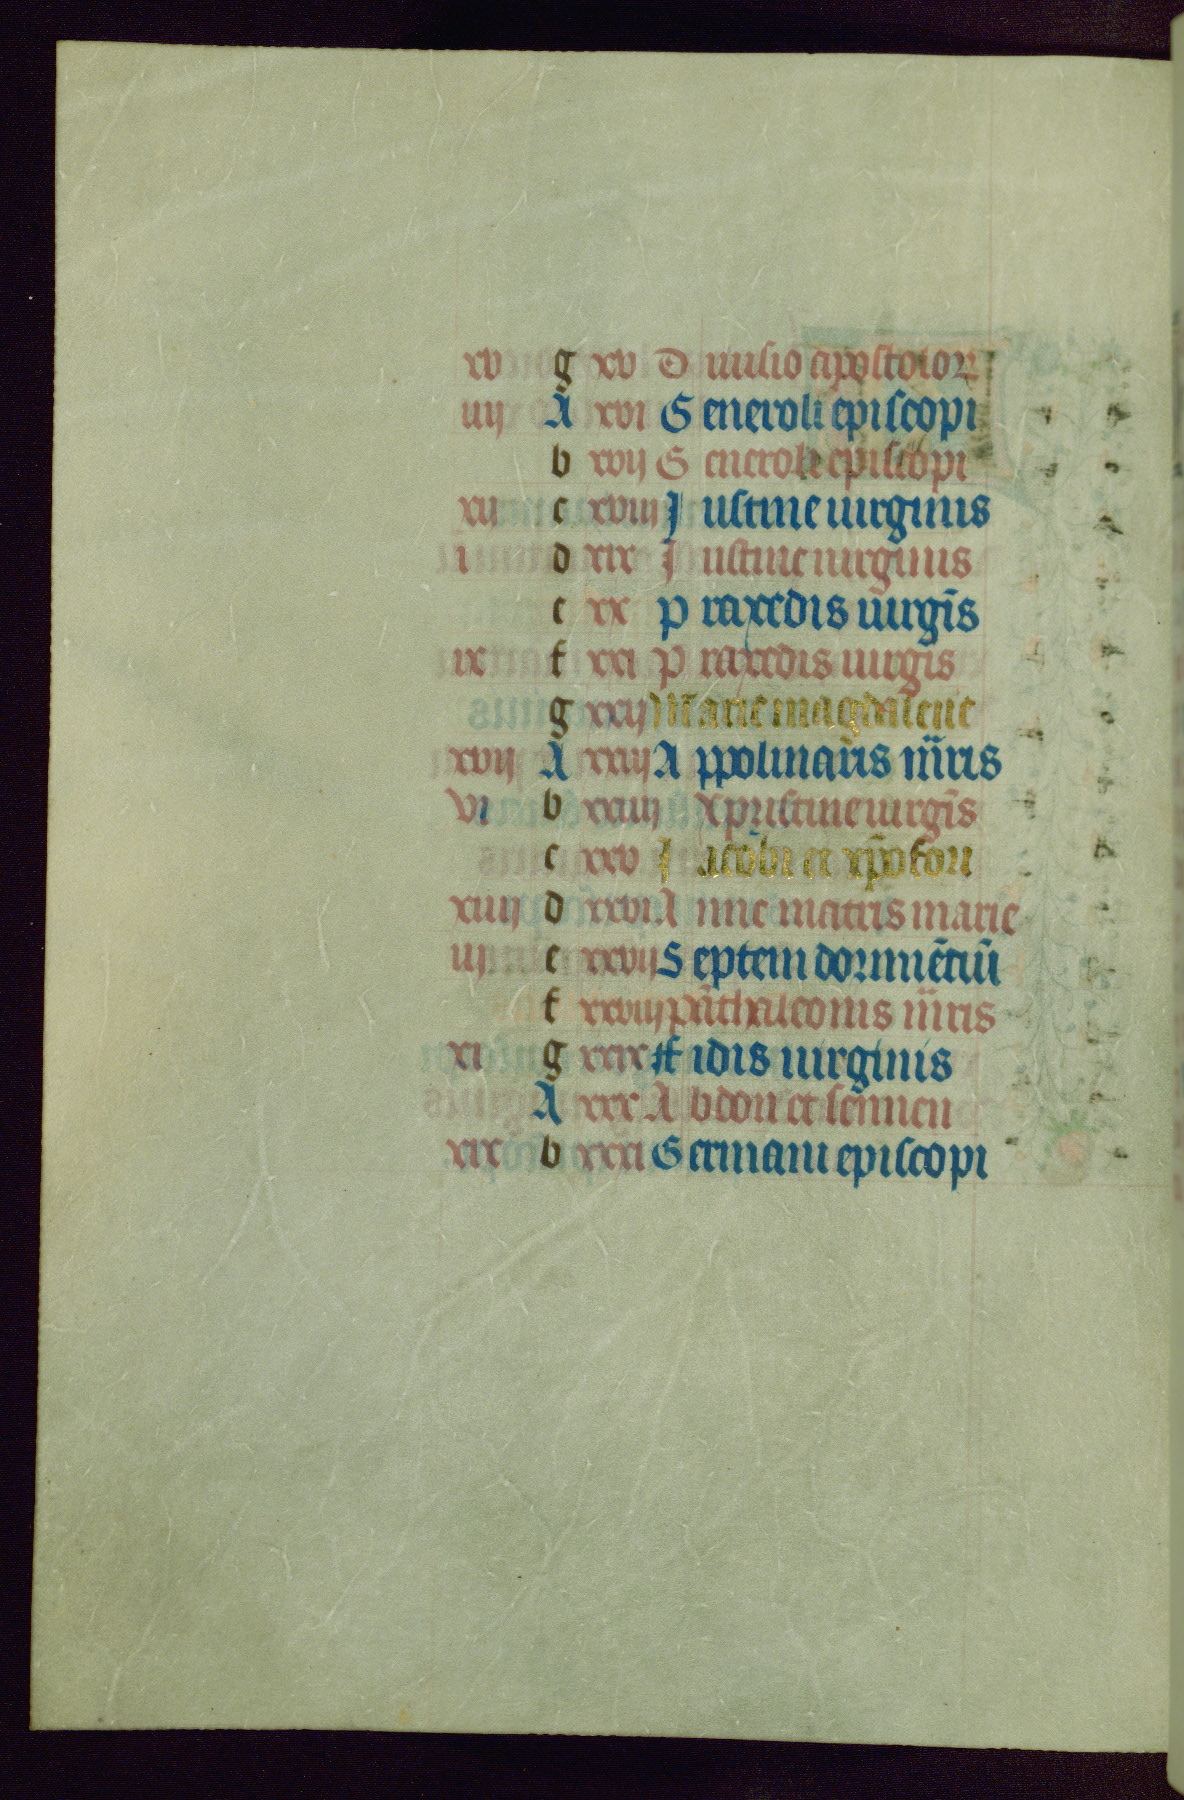 xv g xv Diuisio apostolor
iiij A xvi Generoli episcopi
b xvij Generoli episcopi
xij c xviij Justine uirginis
i d xix Justine uirginis
e xx Praxedis uirgis
ix f xxi Praxedis uirgis
g xxij Marie magdalene
xvij A xxiij Appolinaris mris
vi b xxiiij Xpristine uirgis
c xxv Jacobi et xpofori
xiiij d xxvi Anne matris marie
iij e xxvij Septem dormietiu
f xxviij Pathaleonis mris
xi g xxix Fidis uirginis
A xxx Abdon et sennen
xix b xxxi Germani episcopi